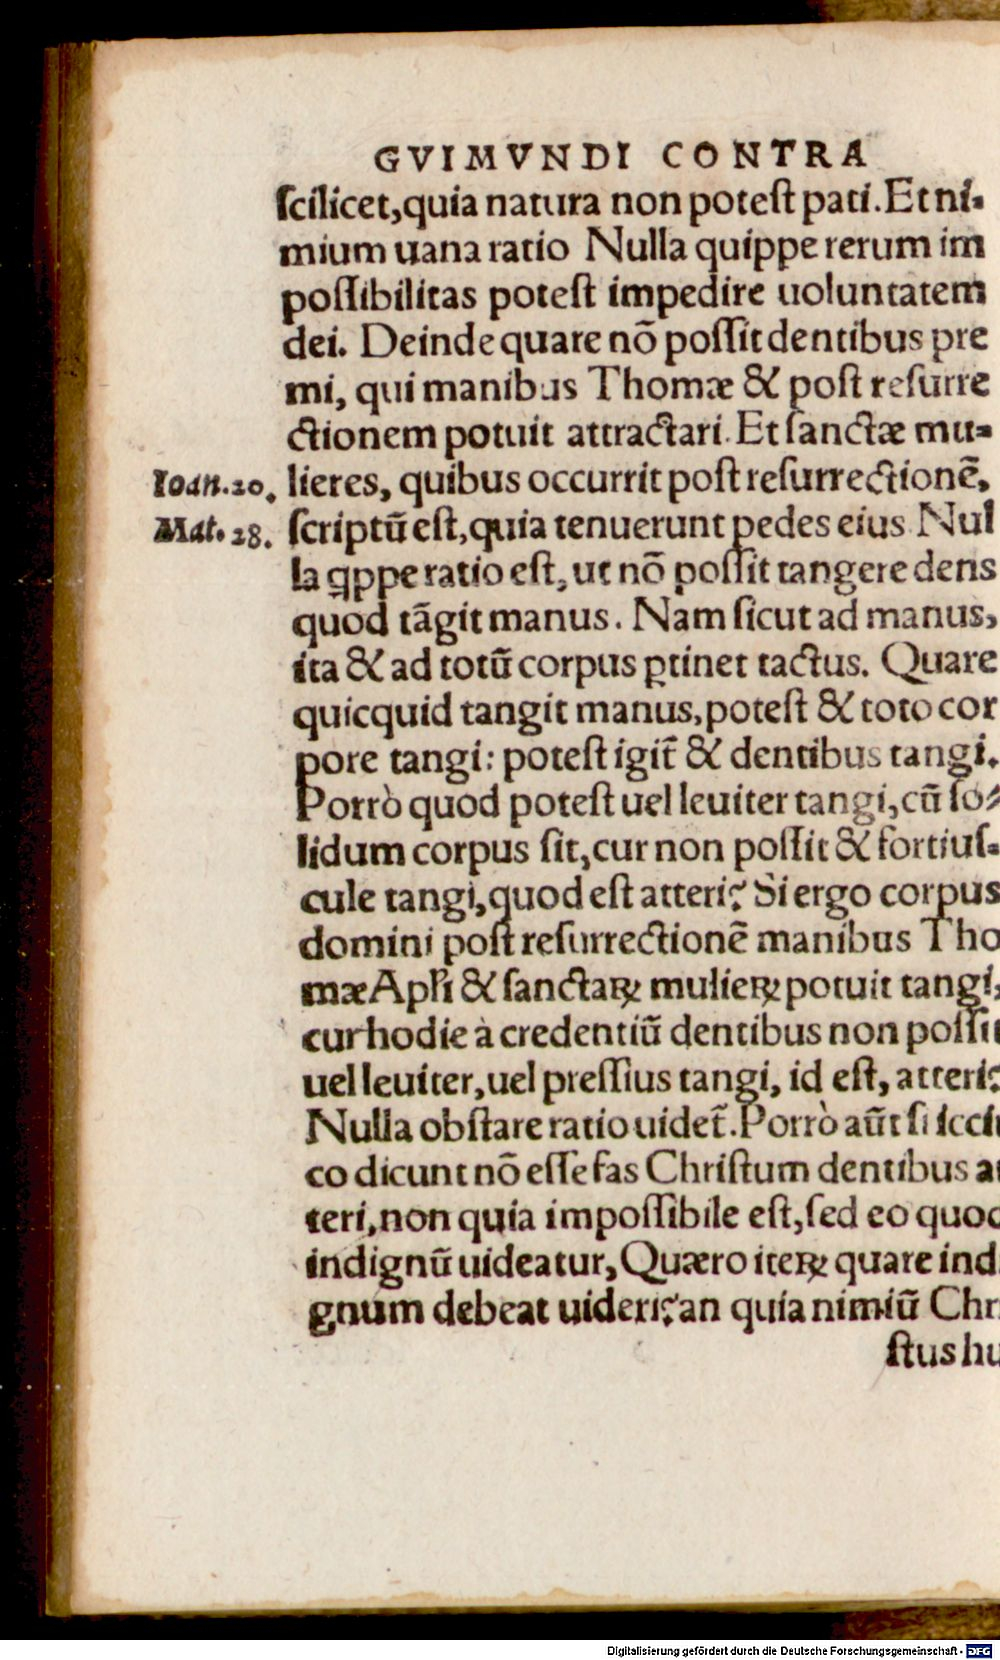 GVIMVNDI CONTRA
ſcilicet,quia natura non poteſt pati. Et ni-
mium uana ratio Nulla quippe rerum im
poſſibilitas poteſt impedire uoluntatem
dei. Deinde quare nõ poſſit dentibus pre
mi, qui manibus Thomæ & poſt reſurre
ctionem potuit attractari. Et ſanctæ mu-
Ioan.20. lieres, quibus occurrit poſt reſurrectionẽ,
Mat.28. ſcriptũ eſt,quia tenuerunt pedes eius. Nul
la qppe ratio eſt, ut nõ poſſit tangere dens
quod tãgit manus. Nam ſicut ad manus,
ita & ad totũ corpus ꝑtinet tactus. Quare
quicquid tangit manus,poteſt & toto cor
pore tangi: poteſt igit̃ & dentibus tangi.
Porrò quod poteſt uel leuiter tangi,cũ ſo-
lidum corpus ſit,cur non poſſit & fortiuſ-
cule tangi,quod eſt atteri? Si ergo corpus
domini poſt reſurrectionẽ manibus Tho
mæ Apſi & ſanctaꝝ mulieꝝ potuit tangi,
cur hodie à credentiũ dentibus non poſſit
uel leuiter,uel preſſius tangi, id eſt, atteri?
Nulla obſtare ratio uidet̃. Porrò aũt ſi icci
co dicunt nõ eſſe fas Chriſtum dentibus at
teri,non quia impoſſibile eſt,ſed eo quod
indignũ uideatur, Quæro iteꝝ quare ind
gnum debeat uideri? an quia nimiũ Chr
ſtus hu
Digitalisierung gefördert durch die Deutsche Forschungsgemeinschaft - DFG